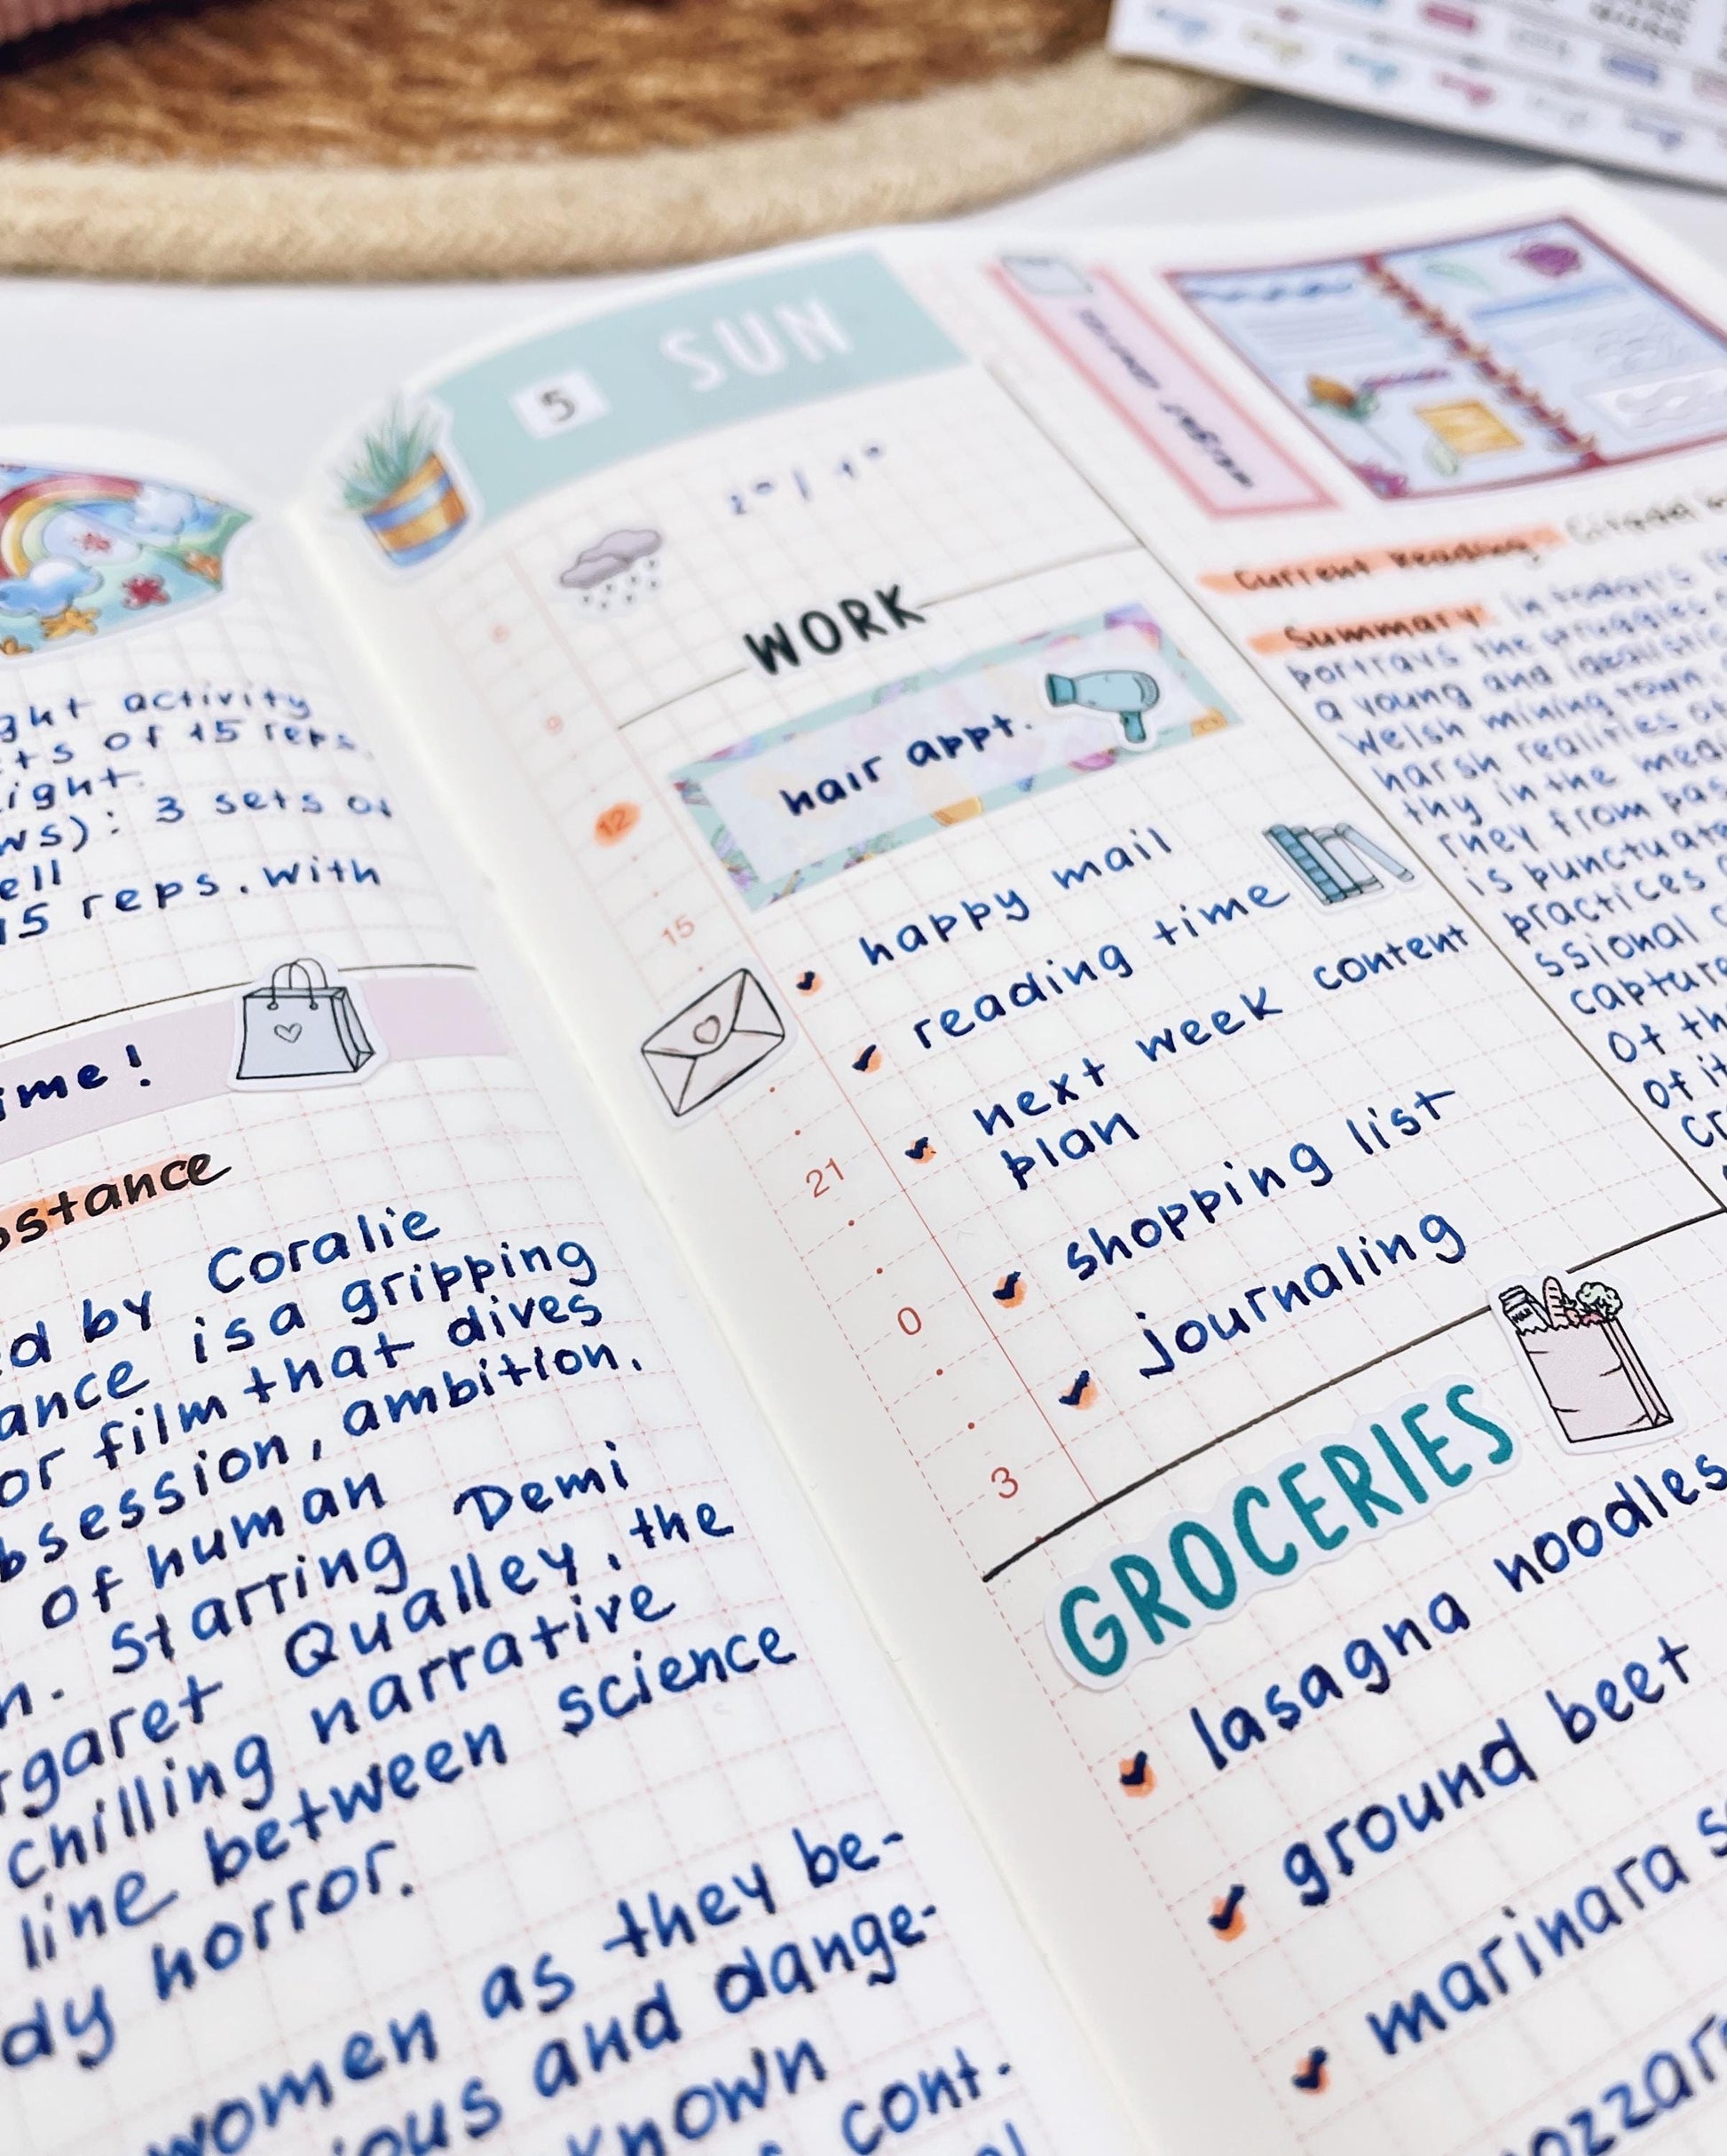 ght activity
ts of 15 reps.
ight.
ws): 3 sets of
ell
15 reps. with
ime!
bstance
ed by Coralie
ance is a gripping
or film that dives
bsession, ambition,
of human
n. Starring Demi
rgaret Qualley, the
chilling narrative
line between science
dy horror.
women as they be-
ious and dange-
known
cont.
5 SUN
WORK
hair appt.
happy mail
reading time
next week content
plan
shopping list
journaling
9
12
15
21
0
3
GROCERIES
lasagna noodles
ground beet
marinara s
ozzar
Current Reading: Citadel
Summary: In today's
portrays the struggles
a young and idealistic
Welsh mining town.
harsh realities of
thy in the medi
They from pas
is punctuate
practices
ssional c
capture
of th
of it
cr